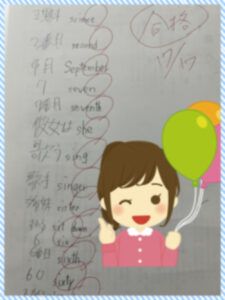 合格
17/17
science
second
9月 September
7 seven
seventh
彼女は she
歌う sing
歌手 singer
姉妹 sister
sit down
6 six
6番目 sixth
60 sixty